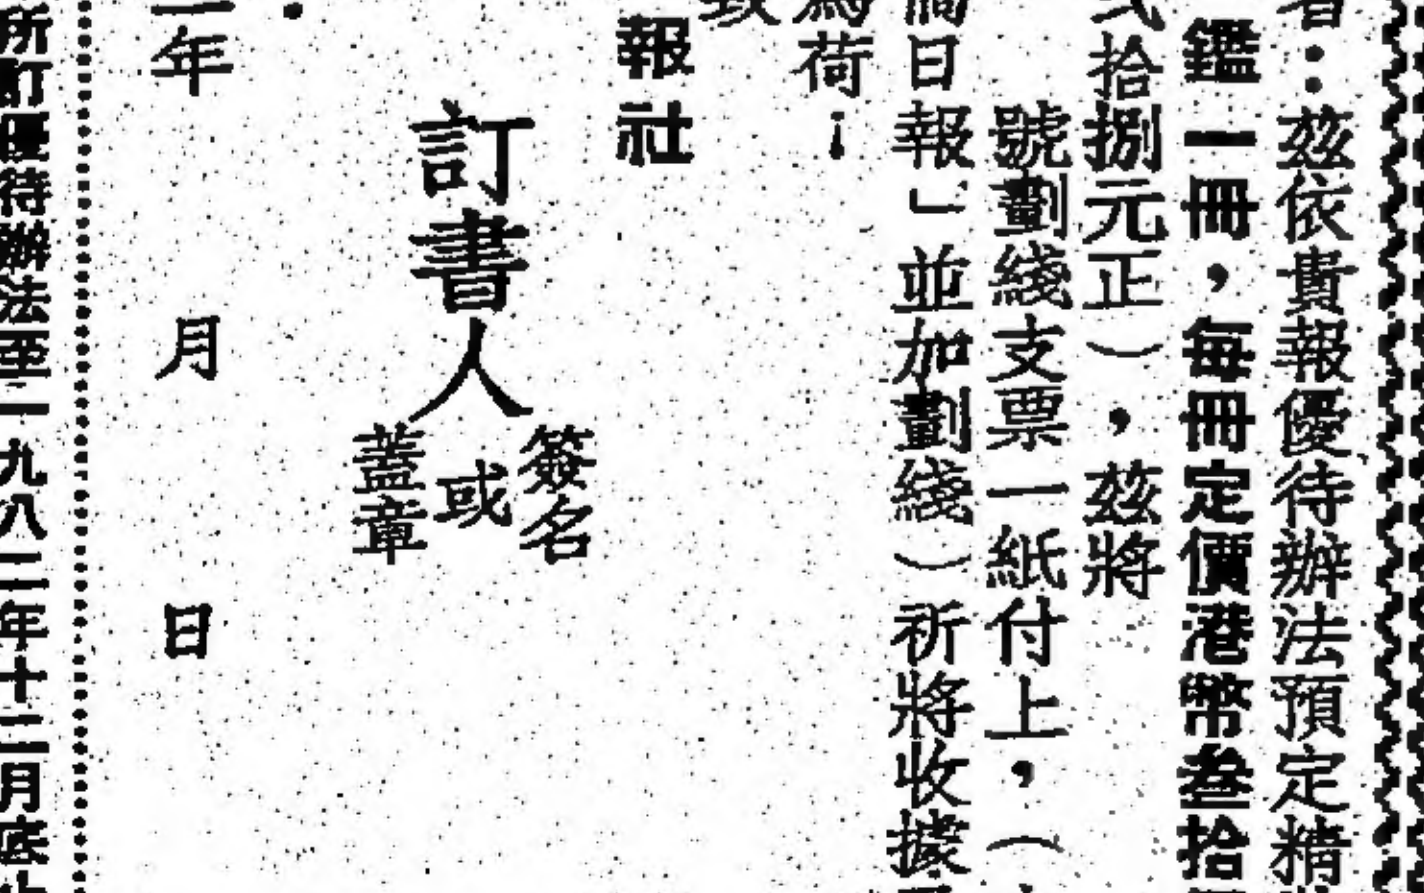 者：茲依貴報優待辦法預定精
鑑一冊，每冊定價港幣叁拾
弍拾捌元正），茲將
號劃綫支票一紙付上，（
商日報」並加劃綫）祈將收據
為荷；
致
報社
訂書人
簽名
或
蓋章
年 月 日
所訂優待辦法至一九八二年十二月底止